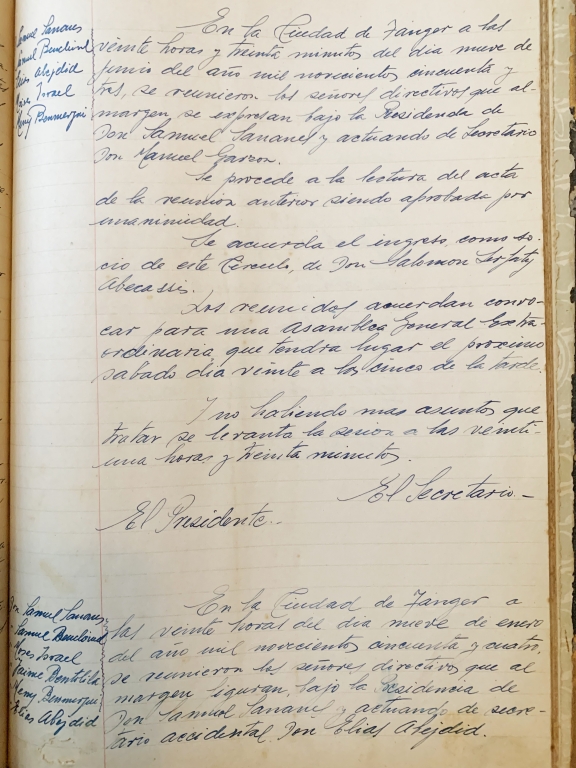 Samuel Sananes
Samuel Bendavid
Elias Abejdid
Moses Israel
Jemy Benmergui
En la Ciudad de Tanger a las
veinte horas y treinta minutos del dia nueve de
junio del año mil novecientos cincuenta y
tres, se reunieron los señores directivos que al
margen, se expresan bajo la Presidencia de
Don Samuel Sananes y actuando de Secretario
Don Manuel Garzon.
Se procede a la lectura del acta
de la reunion anterior siendo aprobada por
unanimidad.
Se acuerda el ingreso, como so-
cio de este Circulo, de Don Salomon Serfaty
Abecassis.
Los reunidos acuerdan convo-
car para una Asamblea General Extra-
ordinaria, que tendra lugar el proximo
sabado dia veinte a las cinco de la tarde.
Y no habiendo mas asuntos que
tratar se levanta la sesion a las veinti-
una horas y treinta minutos.
El Secretario-
El Presidente-
Don Samuel Sananes
" Samuel Bendavid
Moses Israel
" Jaime Bentolila
Jemy Benmergui
" Elias Abejdid
En la Ciudad de Tanger a
las veinte horas del dia nueve de enero
del año mil novecientos cincuenta y cuatro,
se reunieron los señores directivos que al
margen figuran, bajo la Presidencia de
Don Samuel Sananes y actuando de secre-
tario accidental Don Elias Abejdid.